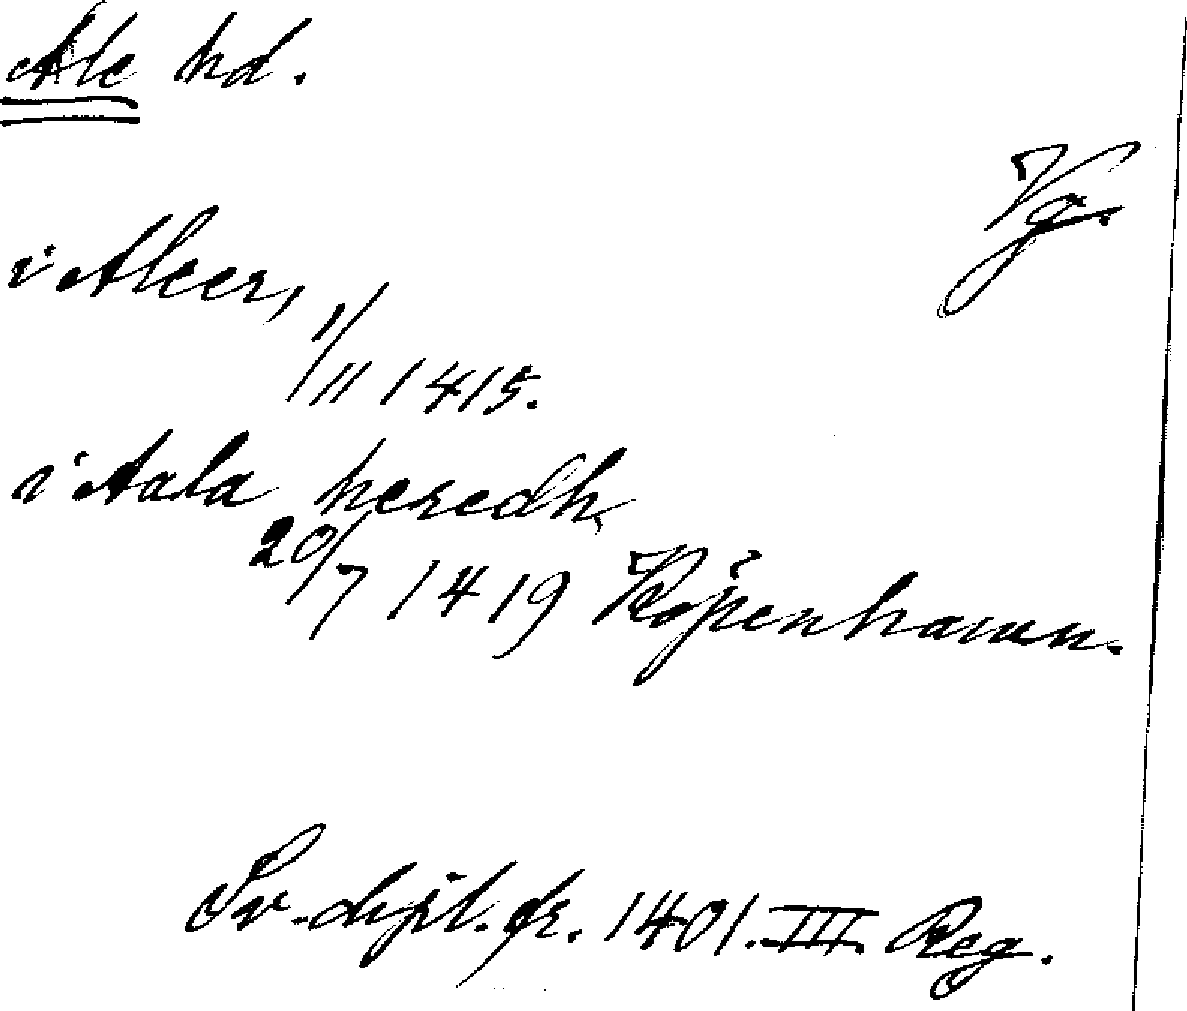 Ale hd.
Vg.
i Aleer,
1/11 1415.
i Aala heredh,
20/7 1419 Köpenhamn.
Sv. dipl. fr. 1401. III. Reg.